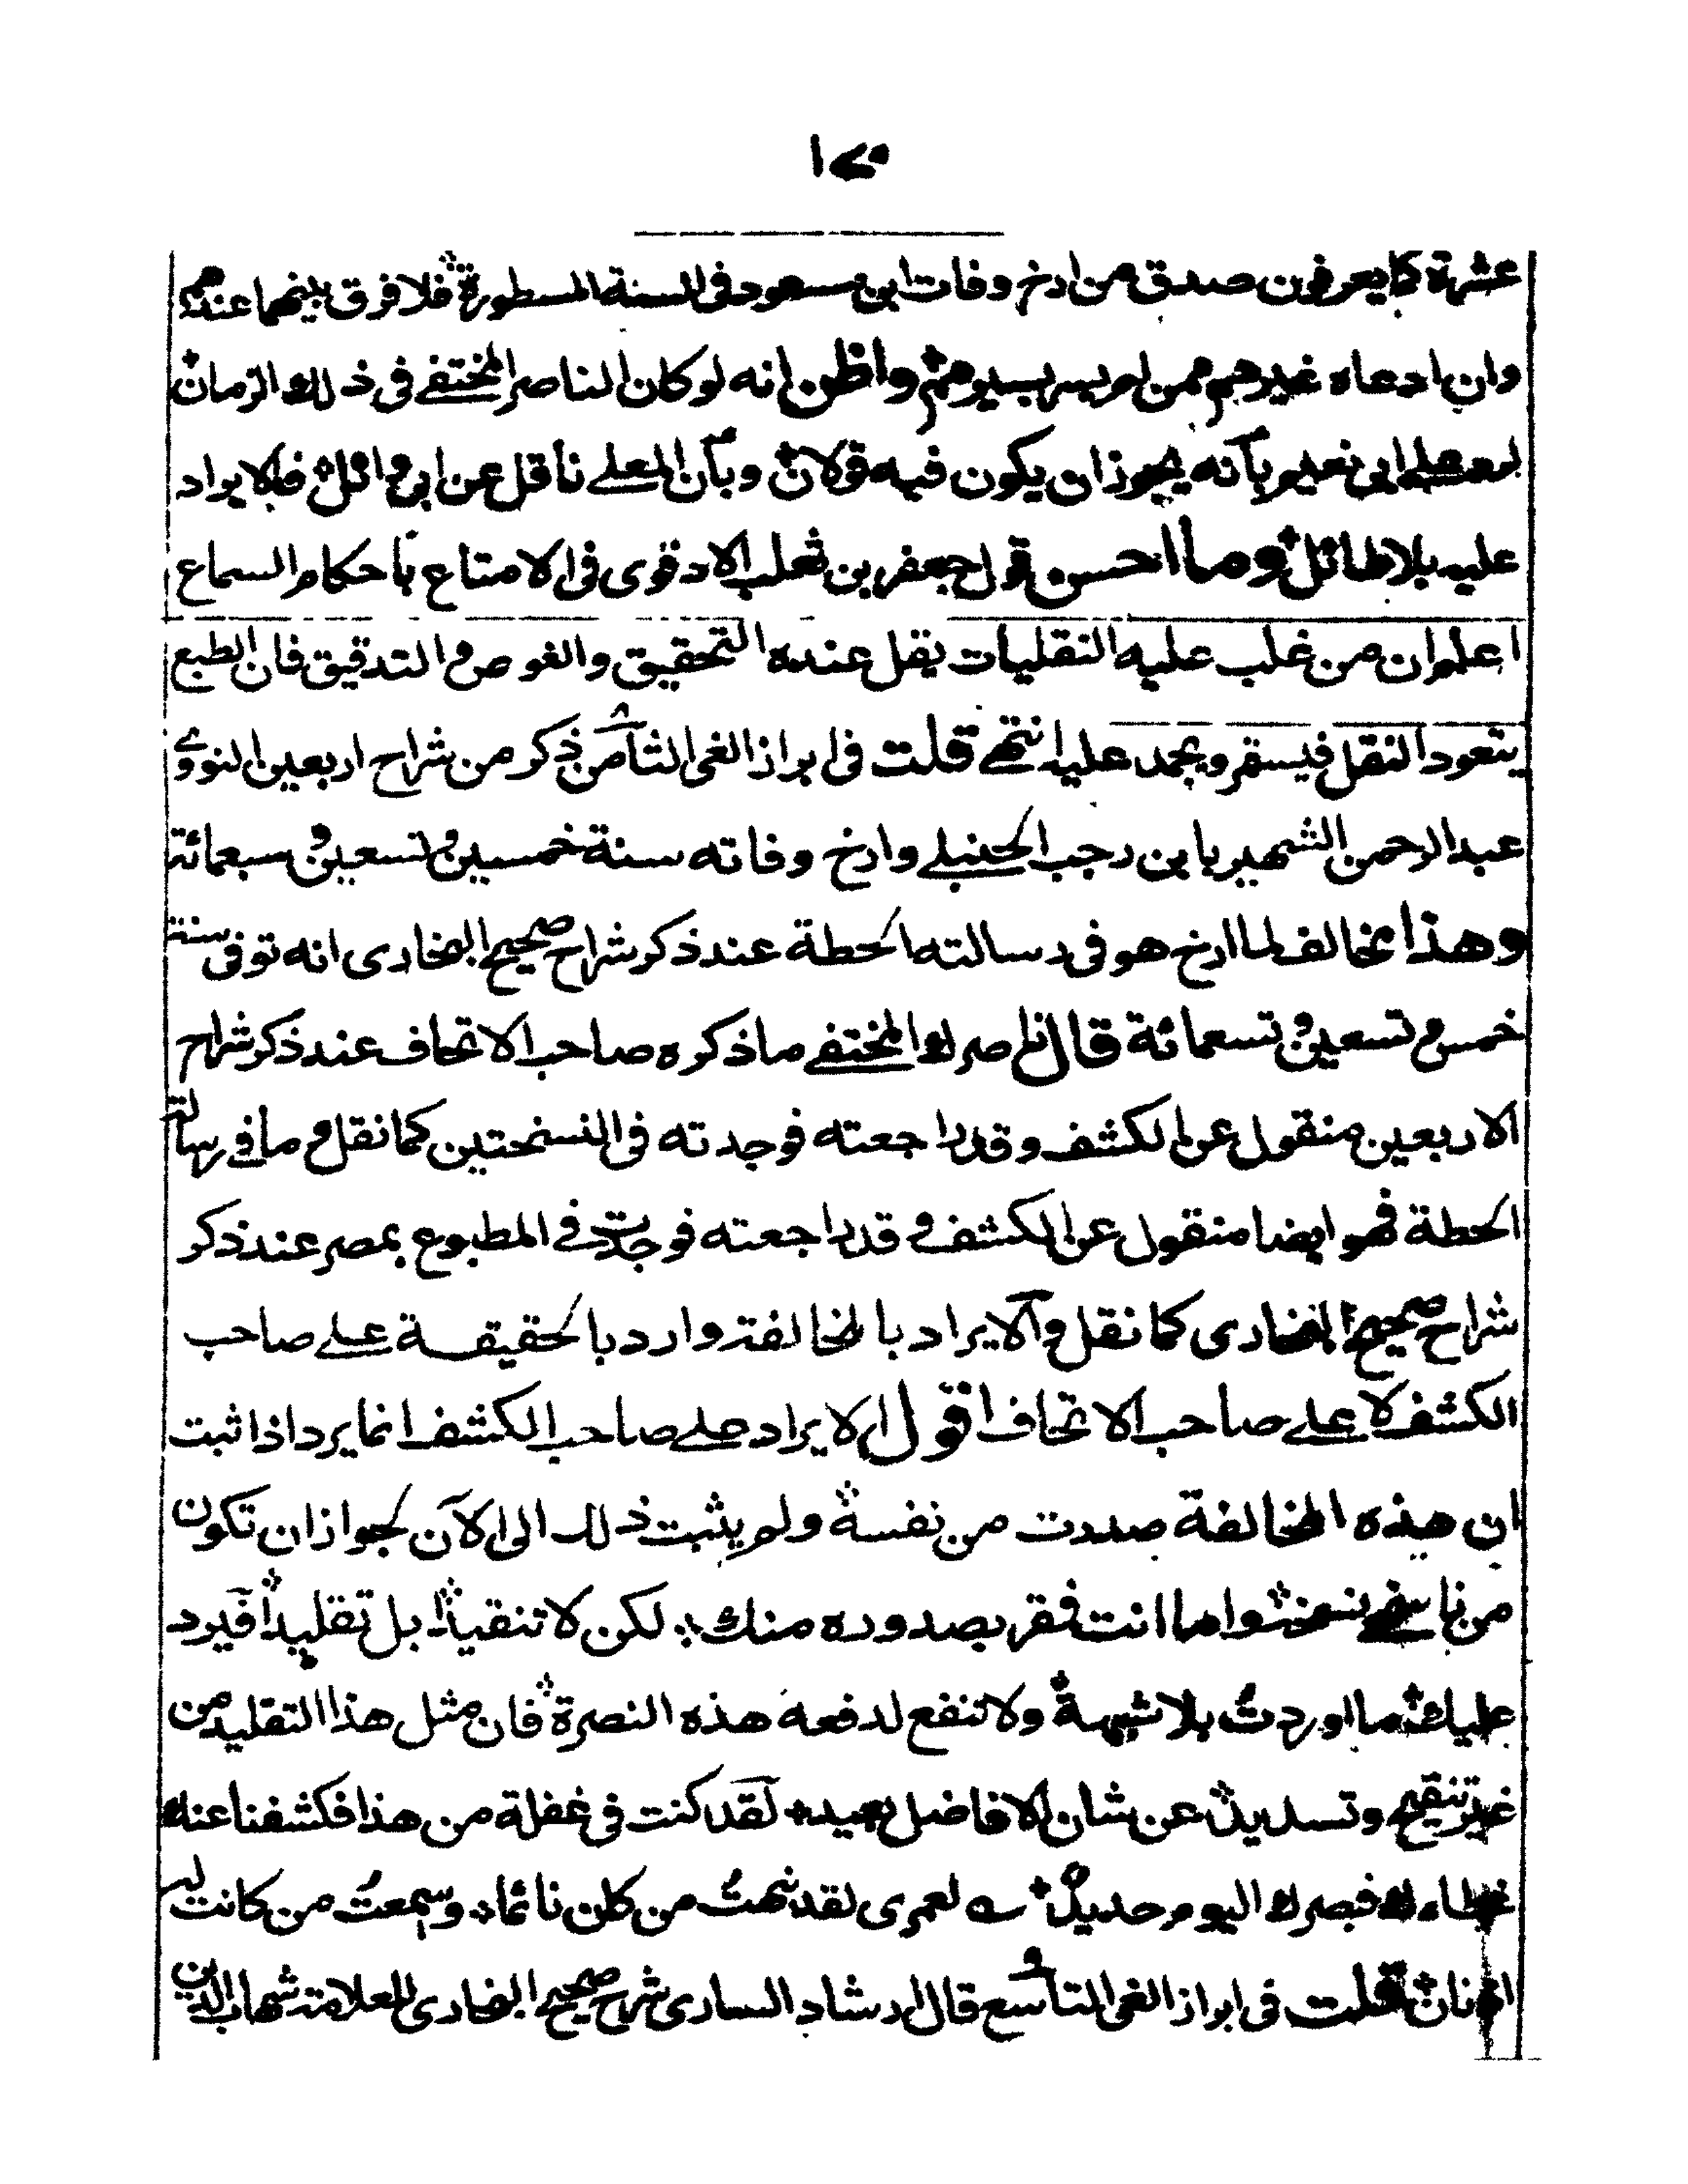 ١٤٥
عشرة كما يعرفون صدق من ارخ وفات ابن مسعود فى السنة المسطورة فلا فرق بينهما عندهم
وان ادعاه غيرهم ممن لم يسر بسيرهم واظن انه لو كان الناصر المختفے فى ذلك الزمان
ابى نعيم بانه يجوز ان يكون فيه قولان وبان المعلے ناقل عن ابى وائل فالايراد
عليه بلا طائل وما احسن قول جعفر بن ثعلب الادفوى فى الامتاع باحكام السماع
اعلم ان من غلب عليه النقليات يقل عنده التحقيق والغوص والتدقيق فان الطبع
يتعود النقل فيستقر ويجمد عليه انتهے قلت فى ابراز الغى الثامن ذكر من شراح اربعين النووے
عبد الرحمن الشهير بابن رجب الحنبلے وارخ وفاته سنة خمس وتسعين وسبعمائة
وهذا مخالف لما ارخ هو فى رسالته الحطة عند ذكر شراح صحيح البخارى انه توفى سنة
خمس وتسعين وتسعمائة قال ناصرك المختفے ما ذكره صاحب الاتحاف عند ذكر شراح
الاربعين منقول عن الكشف وقد راجعته فوجدته فى النسختين كما نقل وما فے رسالة
الحطة فهو ايضا منقول عن الكشف وقد راجعته فوجدت فے المطبوع بمصر عند ذكر
شراح صحيح البخارى كما نقل والايراد بالمخالفة وارد بالحقيقة علے صاحب
الكشف لا علے صاحب الاتحاف اقول الايراد علے صاحب الكشف انما يرد اذا ثبت
ان هذه المخالفة صدرت من نفسه ولم يثبت ذلك الى الآن لجواز ان تكون
من ناسخے نسخته واما انت فقر بصدوره منك لكن لا تنقيدا بل تقليدا فيرد
عليك ما اوردت بلا شبهة ولا تنفع لدفعه هذه النصرة فان مثل هذا التقليد من
غير تنقيح وتسديد عن شان الافاضل بعيد لقد كنت فى غفلة من هذا فكشفنا عنك
غطاءك فبصرك اليوم حديد ـه لعمرى لقد نبهت من كان نائما وسمعت من كانت له
اذنان قلت فى ابراز الغى التاسع قال ارشاد السارى شرح صحيح البخارى للعلامة شهاب الدين